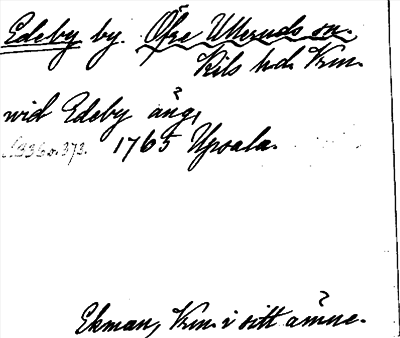 Edeby by. Öfre Ulleruds sn.
Kils hd. Krm.
wid Edeby äng,
1765 Upsala.
Ekman, Krm. i sitt ämne.